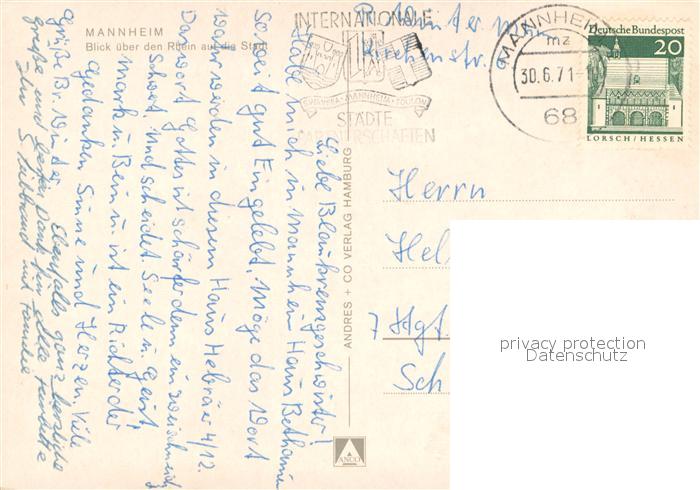 MANNHEIM
Blick über den Rhein auf die Stadt
INTERNATIONALE
MANNHEIM
STÄDTE
PARTNERSCHAFTEN
MANNHEIM
mz
30.6.71
68
Deutsche Bundespost
20
LORSCH/HESSEN
Liebe Blaukreuzgeschwister!
Habe mich in Mannheim Haus Bethanien
soweit gut Eingelebt, möge das Wort
wahr werden in diesem Haus Hebräer 4/12.
Das wort Gottes ist schärfer denn ein zweischneidig
Schwert, und scheidet Seele u. Geist,
mark u. Bein u. ist ein Richter der
Gedanken Sinne und Herzen. Viele
Grüße Br. Winter
Ebenfalls ganz herzliche
Grüße und
Ihr S. und Familie
ANDRES + CO VERLAG HAMBURG
ANCO
Herrn
Hel
7 Stgt.
Sch
privacy protection
Datenschutz